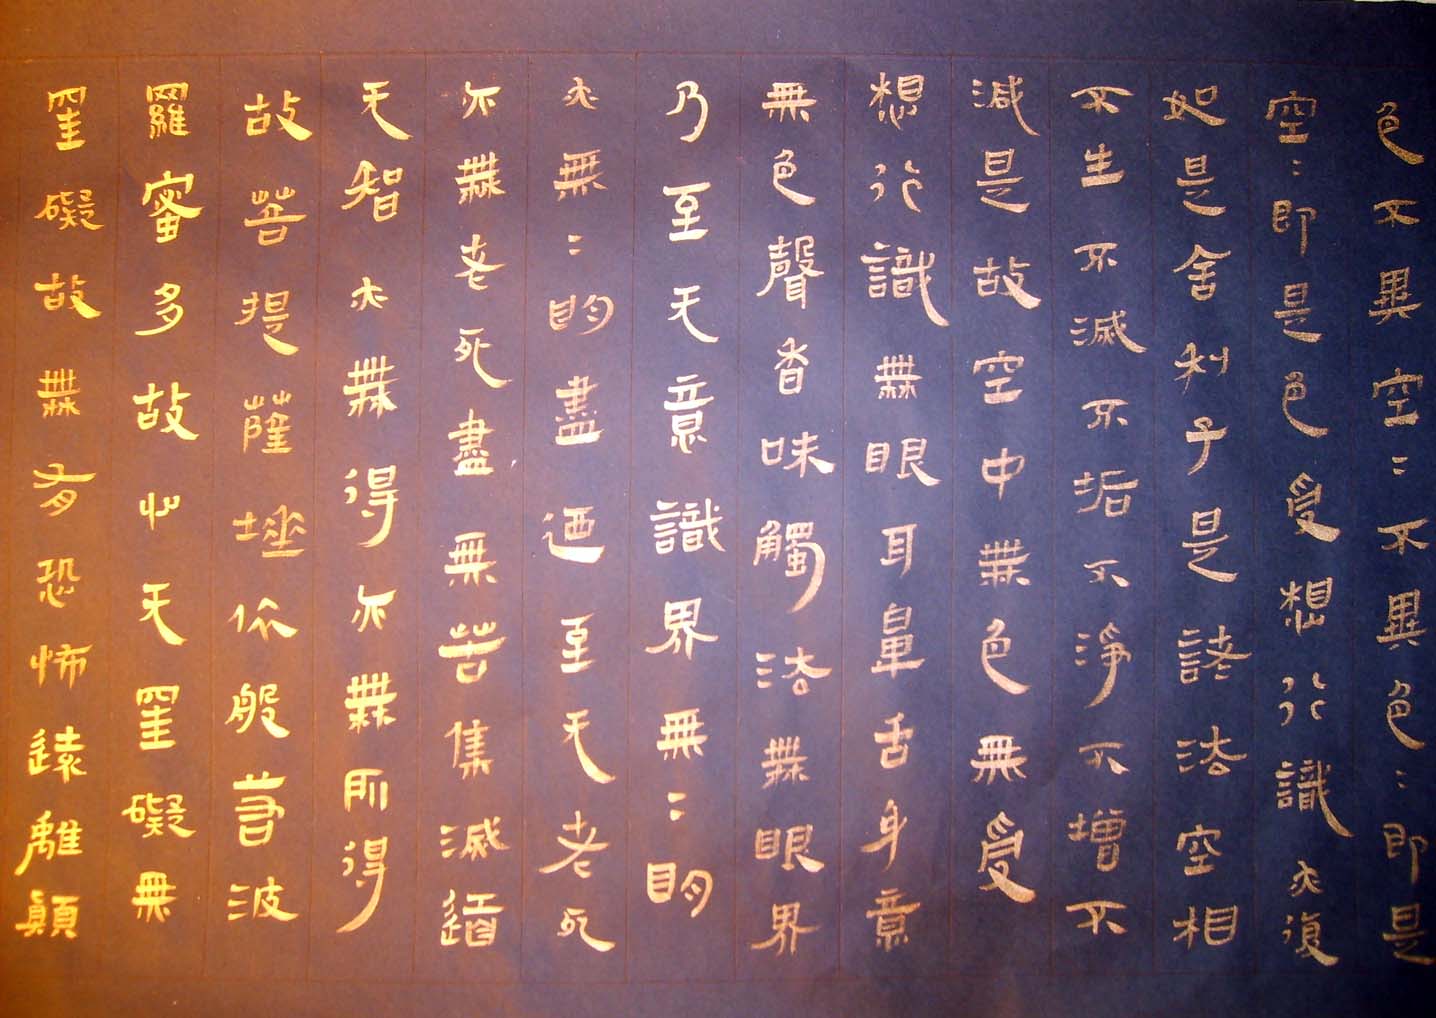 色不異空〻不異色〻即是
空〻即是色受想行識亦復
如是舍利子是諸法空相
不生不滅不垢不淨不增不
減是故空中無色無受
想行識無眼耳鼻舌身意
無色聲香味觸法無眼界
乃至无意識界無〻明
亦無〻明盡迺至无老死
亦無老死盡無苦集滅道
无智亦無得亦無所得
故菩提薩埵依般若波
羅蜜多故心无罣礙無
罣礙故無有恐怖遠離顛